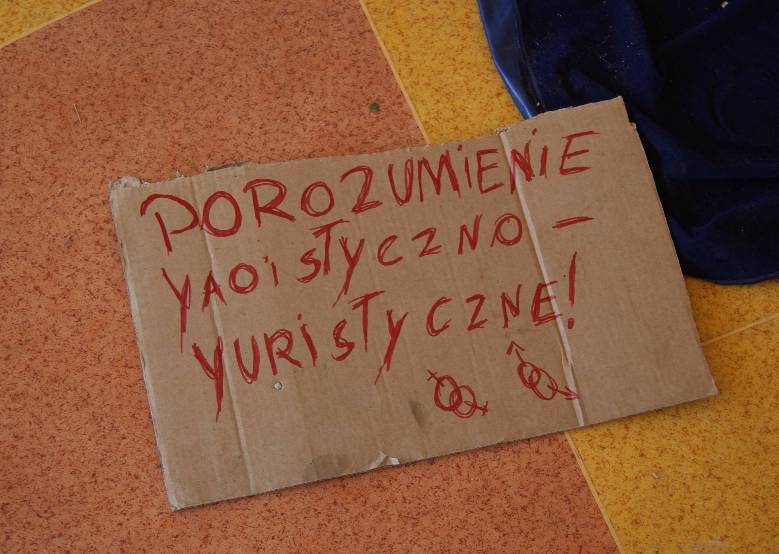 POROZUMIENIE
YAOiSTYCZNO -
YURiSTYCZNE!